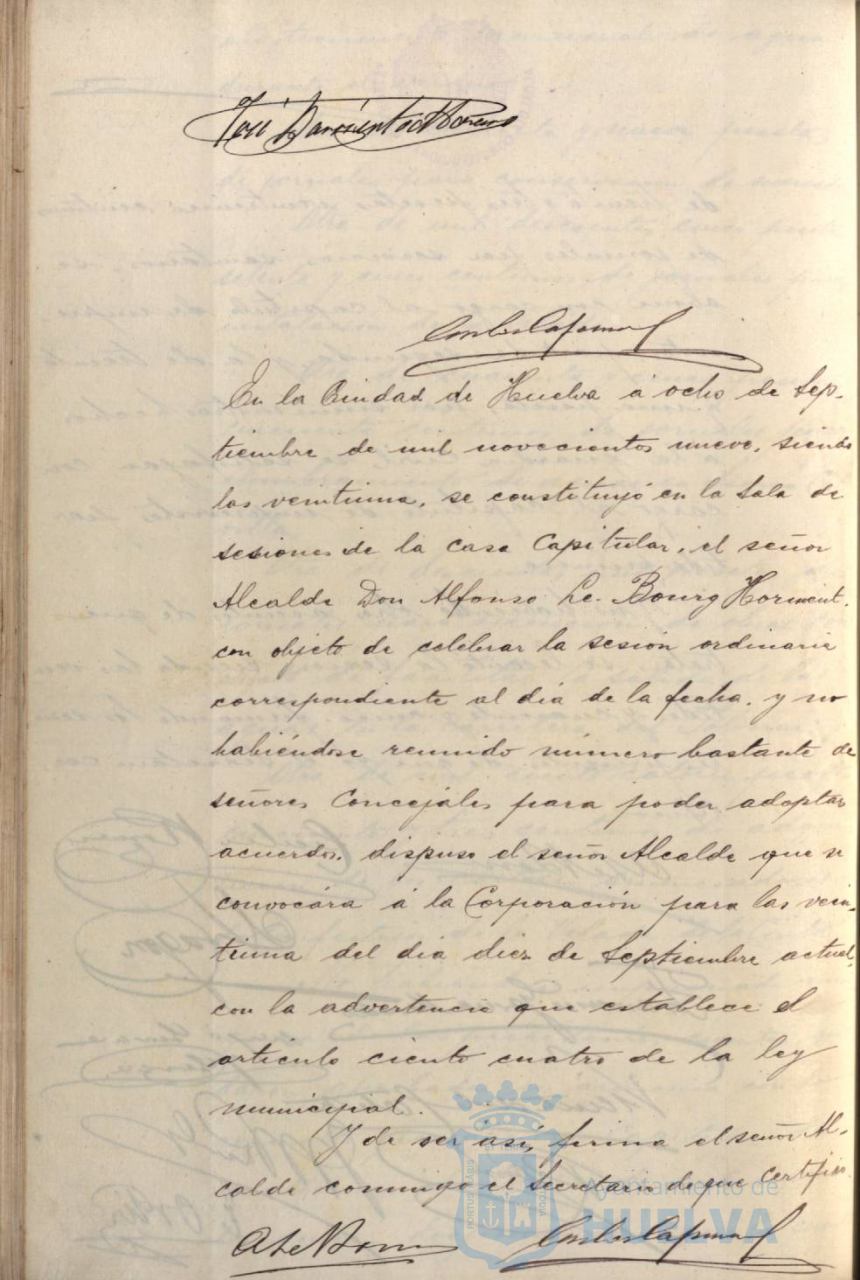 José Sarmiento
En la Ciudad de Huelva á ocho de Sep-
tiembre de mil novecientos nueve, siendo
las veintiuna, se constituyó en la Sala de
sesiones de la casa Capitular, el señor
Alcalde Don Alfonso Le-Bourg Horment.
con objeto de celebrar la sesión ordinaria
correspondiente al día de la fecha. y no
habiéndose reunido número bastante de
señores Concejales para poder adoptar
acuerdos, dispuso el señor Alcalde que se
convocára á la Corporación para las vein-
tiuna del día diez de Septiembre actual,
con la advertencia que establece el
artículo ciento cuatro de la ley
municipal.
Y de ser así, firma el señor Al-
calde conmigo el Secretario de que certifico.
Ayuntamiento de
HUELVA